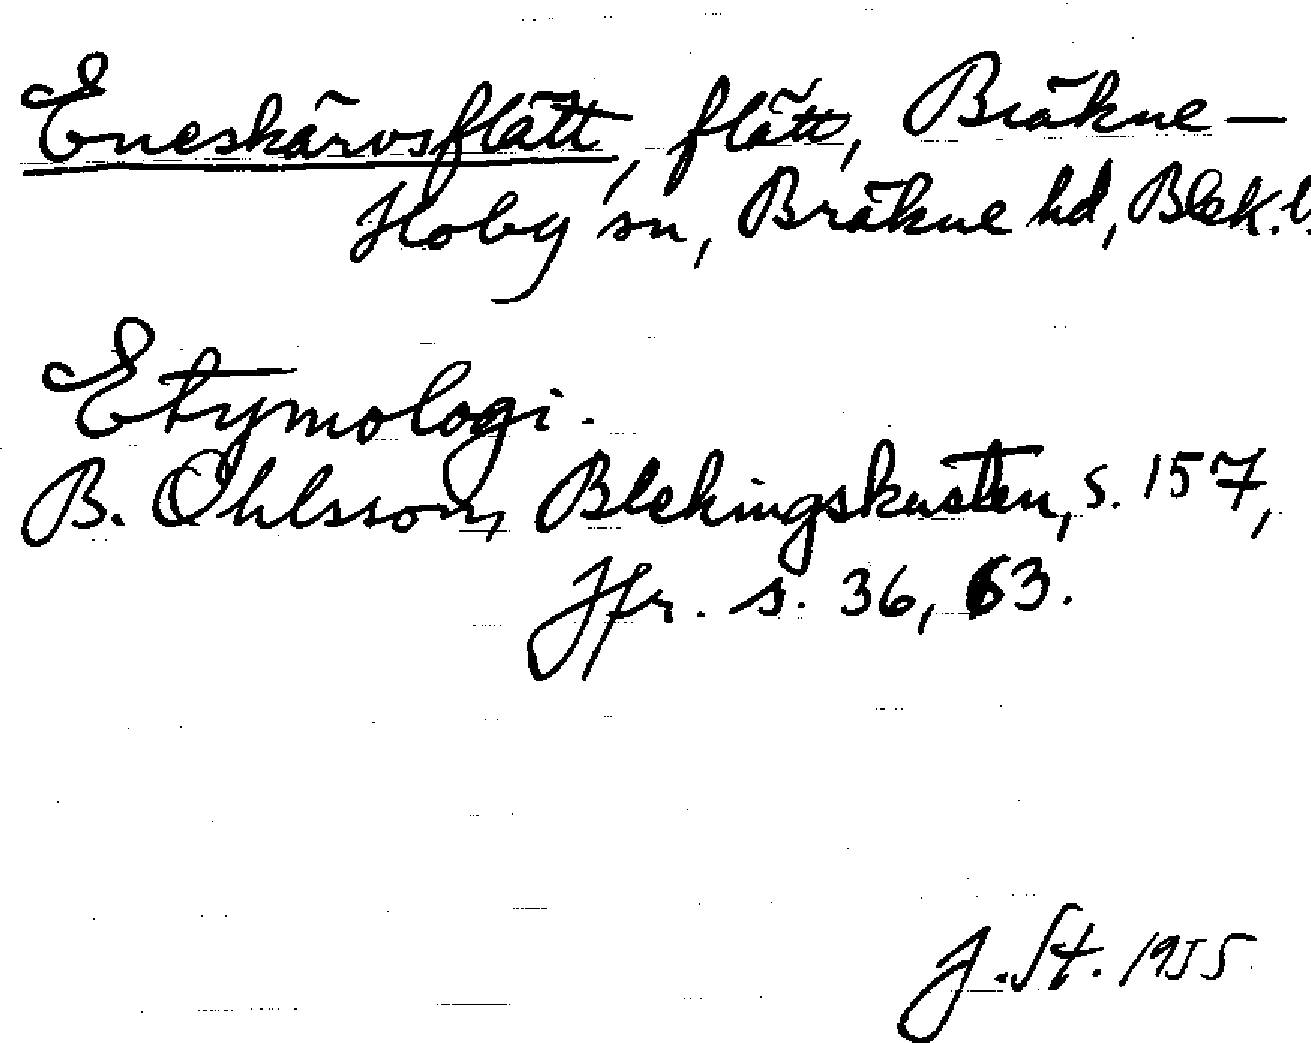 Eneskärvsflätt, flätt, Bräkne-
Hoby sn, Bräkne hd, Blek.l.
Etymologi.
B. Ohlsson, Blekingskusten, s. 157,
Jfr. s. 36, 63.
J. St. 1955